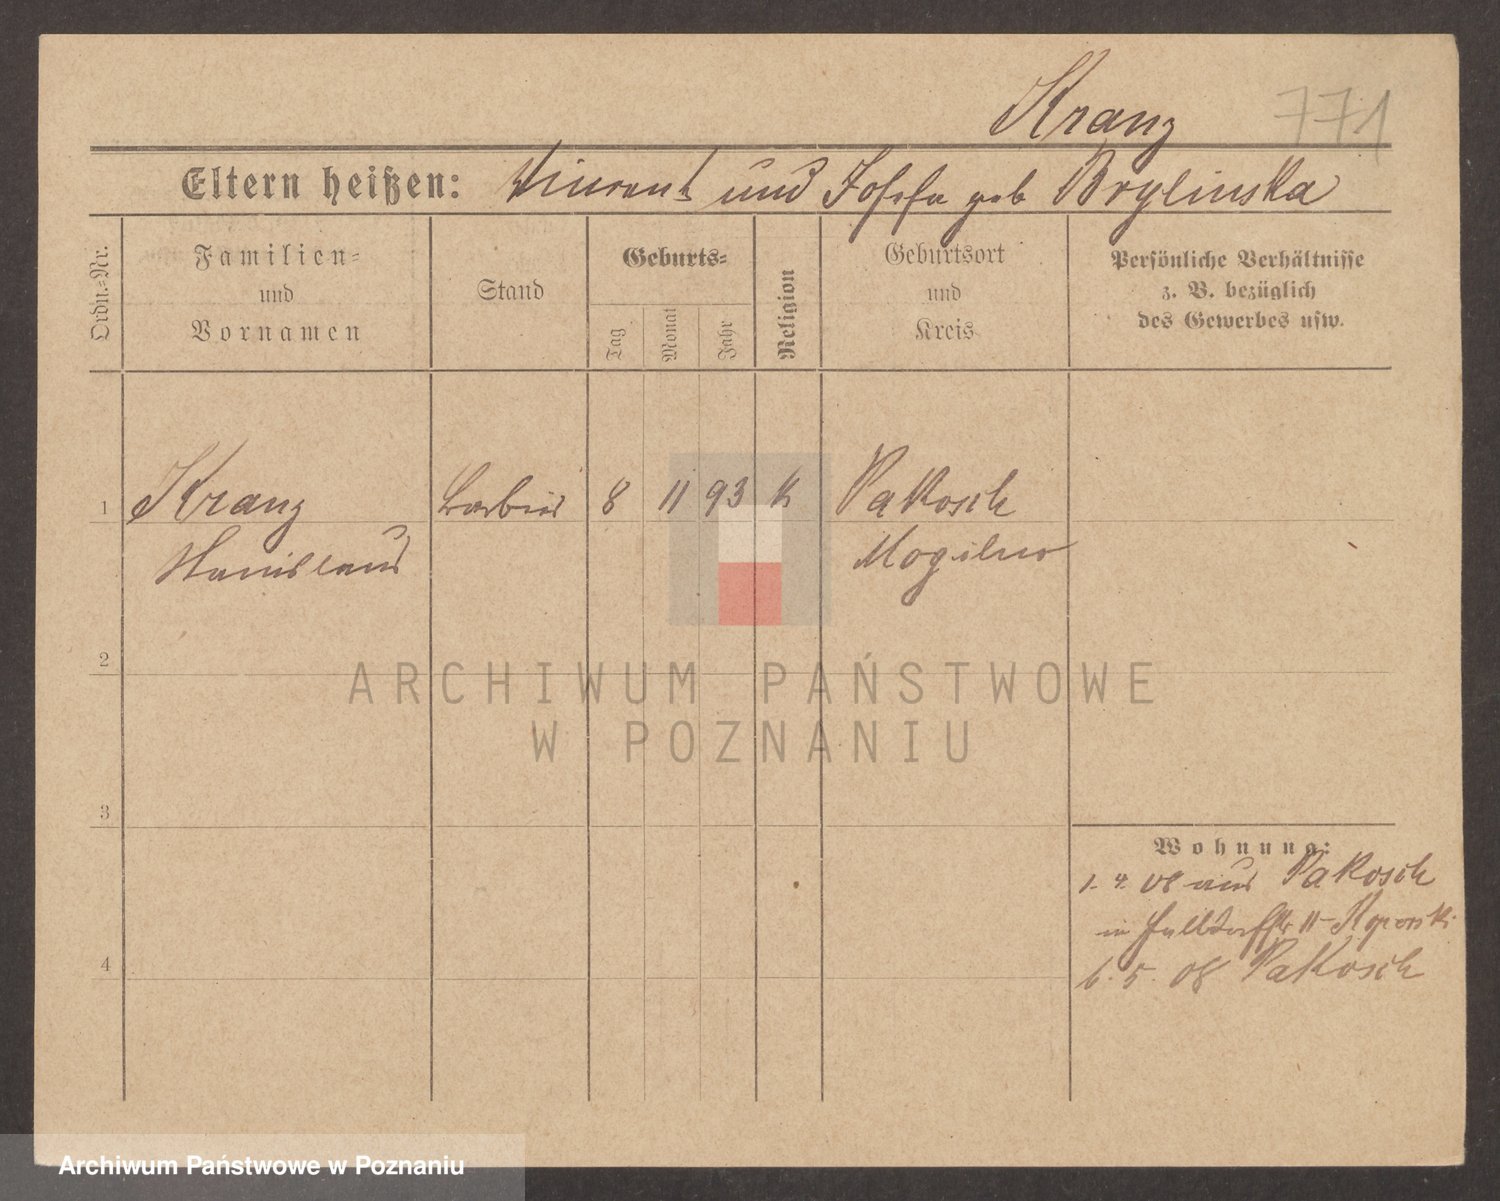 Kranz 771
Eltern heißen: Vincent und Josefa geb Brylinska
Ordn.-Nr.
Familien-
und
Vornamen
Stand
Geburts-
Tag
Monat
Jahr
Religion
Geburtsort
und
Kreis
Persönliche Verhältnisse
z. B. bezüglich
des Gewerbes usw.
1 Kranz Barbier 8 11 93 k Pakosch
Stanislaus Mogilno
2
ARCHIWUM PAŃSTWOWE
W POZNANIU
3
Wohnung:
1. 4. 08 aus Pakosch
in 11
4
6. 5. 08 Pakosch
Archiwum Państwowe w Poznaniu